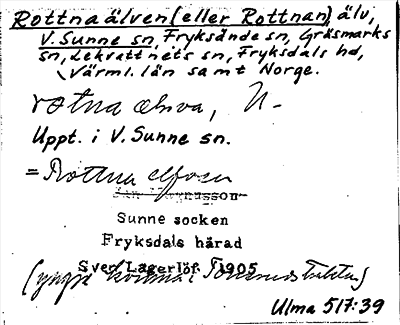 Rottnaälven (eller Rottnan), älv,
V. Sunne sn, Fryksände sn, Gräsmarks
sn, Lekvattnets sn, Fryksdals hd,
Värml. län samt Norge.
rotna ælva,
Uppt. i V. Sunne sn.
= Rottna elfven
Sunne socken
Fryksdals härad
Sven Lagerlöf 1905
(yngre
Ulma 517:39